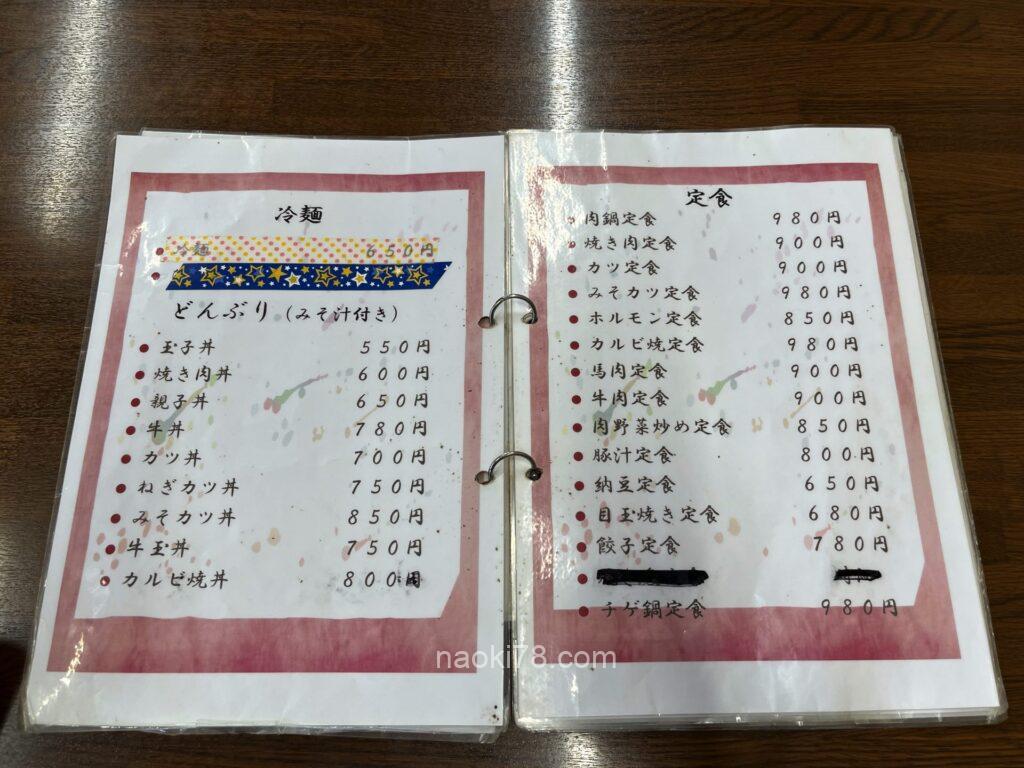 冷麺
冷麺 650円
どんぶり（みそ汁付き）
玉子丼 550円
焼き肉丼 600円
親子丼 650円
牛丼 780円
カツ丼 700円
ねぎカツ丼 750円
みそカツ丼 850円
牛玉丼 750円
カルビ焼丼 800円
定食
肉鍋定食 980円
焼き肉定食 900円
カツ定食 900円
みそカツ定食 980円
ホルモン定食 850円
カルビ焼定食 980円
馬肉定食 900円
牛肉定食 900円
肉野菜炒め定食 850円
豚汁定食 800円
納豆定食 650円
目玉焼き定食 680円
餃子定食 780円
チゲ鍋定食 980円
naoki78.com